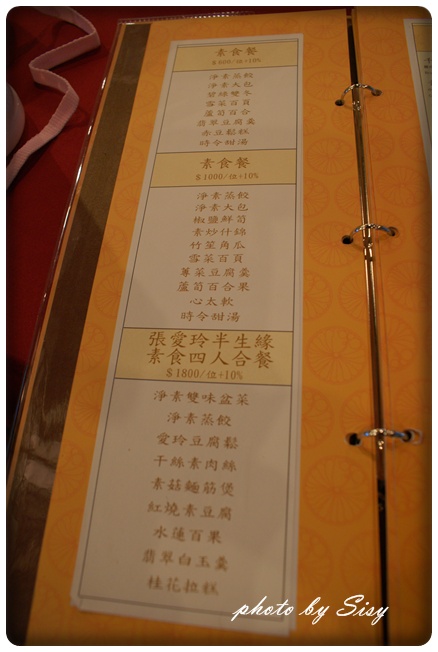 素食餐
$800/位+10%
淨素蒸餃
淨素大包
碧綠雙冬
雪菜百頁
蘆筍百合
翡翠豆腐羹
赤豆鬆糕
時令甜湯
素食餐
$1000/位+10%
淨素蒸餃
淨素大包
椒鹽鮮筍
素炒什錦
竹笙角瓜
雪菜百頁
蓴菜豆腐羹
蘆筍百合果
心太軟
時令甜湯
張愛玲半生緣
素食四人合餐
$1800/位+10%
淨素雙味盆菜
淨素蒸餃
愛玲豆腐鬆
干絲素肉絲
素菇麵筋煲
紅燒素豆腐
水蓮百果
翡翠白玉羹
桂花拉糕
photo by Sisy